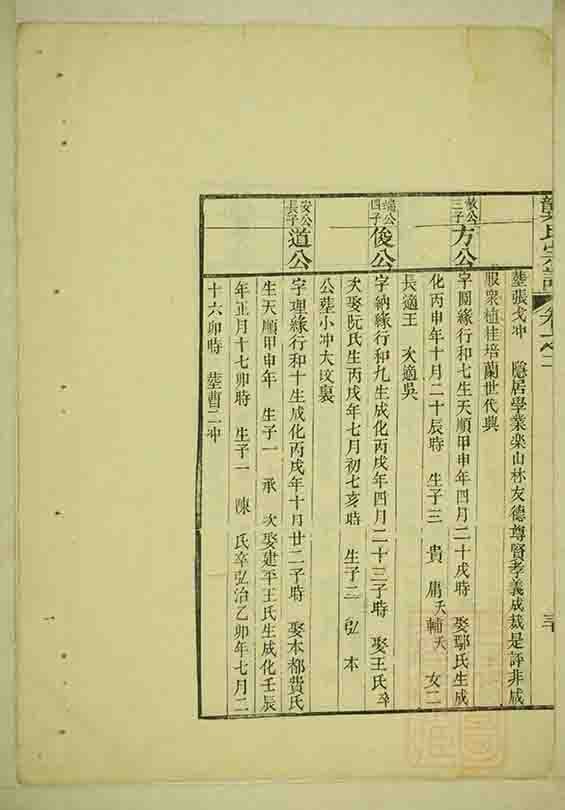 龔氏宗譜 卷之二 三十
塟張戈冲 隱居學業楽山林友德尊賢孝義成裁是評非咸
服衆植桂培蘭世代興
敖公三子 方公
字圓緣行和七生天順甲申年四月二十戌時 娶鄢氏生成
化丙申年十月二十辰時 生子三 貴 庸夭 輔夭 女二
長適王 次適吳
端公四子 俊公
字納緣行和九生成化丙戌年四月二十三子時 娶王氏卒
次娶阮氏生丙戌年七月初七亥時 生子二 弘 本
公塟小冲大坟裏
安公長子 道公
字理緣行和十生成化丙戌年十月廿二子時 娶本都費氏
生天順甲申年 生子一 承 次娶建平王氏生成化壬辰
年正月十七卯時 生子一 陳 氏卒弘治乙卯年七月二
十六卯時 塟曹二冲